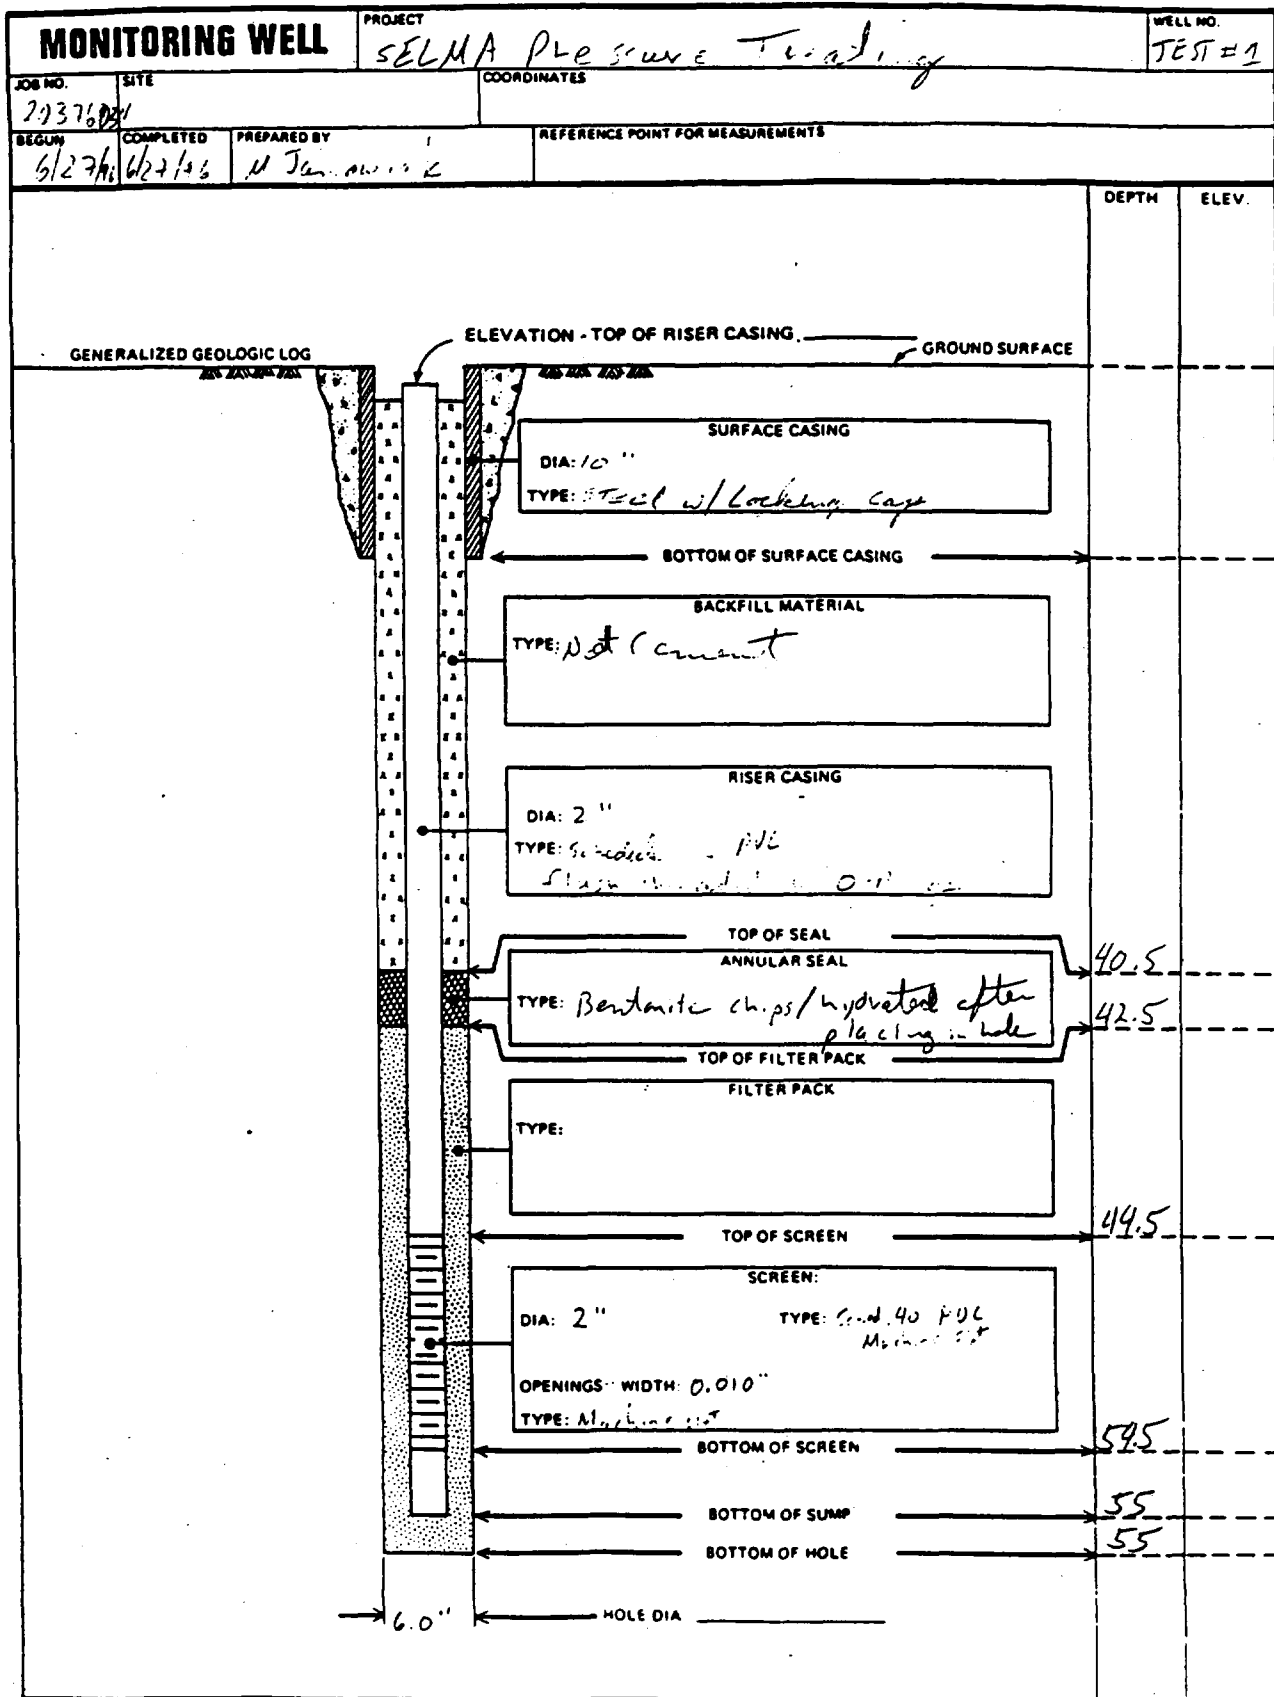 MONITORING WELL
PROJECT
SELMA Pressure Treating
WELL NO.
TEST #1
JOB NO.
SITE
COORDINATES
BEGUN
6/27/96
COMPLETED
6/27/96
PREPARED BY
M
REFERENCE POINT FOR MEASUREMENTS
DEPTH
ELEV.
ELEVATION - TOP OF RISER CASING
GENERALIZED GEOLOGIC LOG
GROUND SURFACE
SURFACE CASING
DIA: 10"
TYPE: Steel w/ Locking cap
BOTTOM OF SURFACE CASING
BACKFILL MATERIAL
TYPE: Neat Cement
RISER CASING
DIA: 2"
TYPE: Schedule PVC
Flush
TOP OF SEAL
40.5
ANNULAR SEAL
TYPE: Bentonite chips/hydrated after
placing in hole
42.5
TOP OF FILTER PACK
FILTER PACK
TYPE:
TOP OF SCREEN
44.5
SCREEN:
DIA: 2"
TYPE: 40 PVC
Machine Slot
OPENINGS - WIDTH: 0.010"
TYPE: Machine slot
BOTTOM OF SCREEN
54.5
BOTTOM OF SUMP
55
BOTTOM OF HOLE
55
6.0"
HOLE DIA